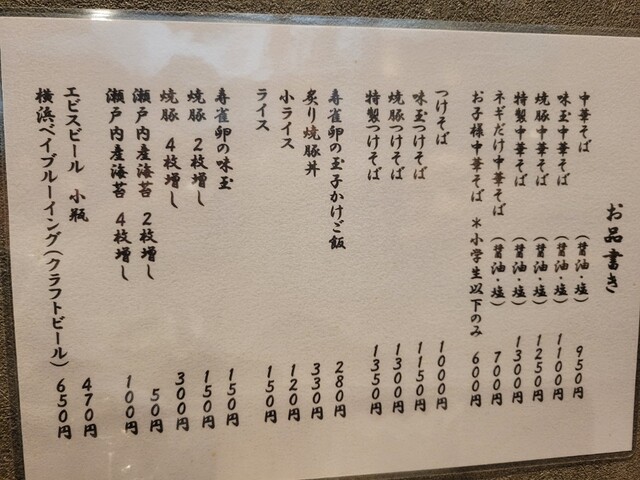 お品書き
中華そば （醤油・塩） 950円
味玉中華そば （醤油・塩） 1100円
焼豚中華そば （醤油・塩） 1250円
特製中華そば （醤油・塩） 1300円
ネギだけ中華そば （醤油・塩） 700円
お子様中華そば ＊小学生以下のみ 600円
つけそば 1000円
味玉つけそば 1150円
焼豚つけそば 1300円
特製つけそば 1350円
寿雀卵の玉子かけご飯 280円
炙り焼豚丼 330円
小ライス 120円
ライス 150円
寿雀卵の味玉 150円
焼豚 2枚増し 150円
焼豚 4枚増し 300円
瀬戸内産海苔 2枚増し 50円
瀬戸内産海苔 4枚増し 100円
エビスビール 小瓶 470円
横浜ベイブルーイング（クラフトビール） 650円